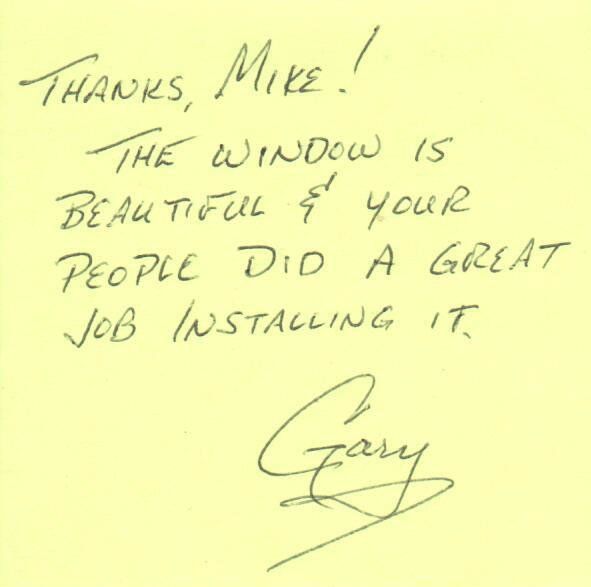 THANKS, MIKE!
THE WINDOW IS
BEAUTIFUL & YOUR
PEOPLE DID A GREAT
JOB INSTALLING IT.
Gary